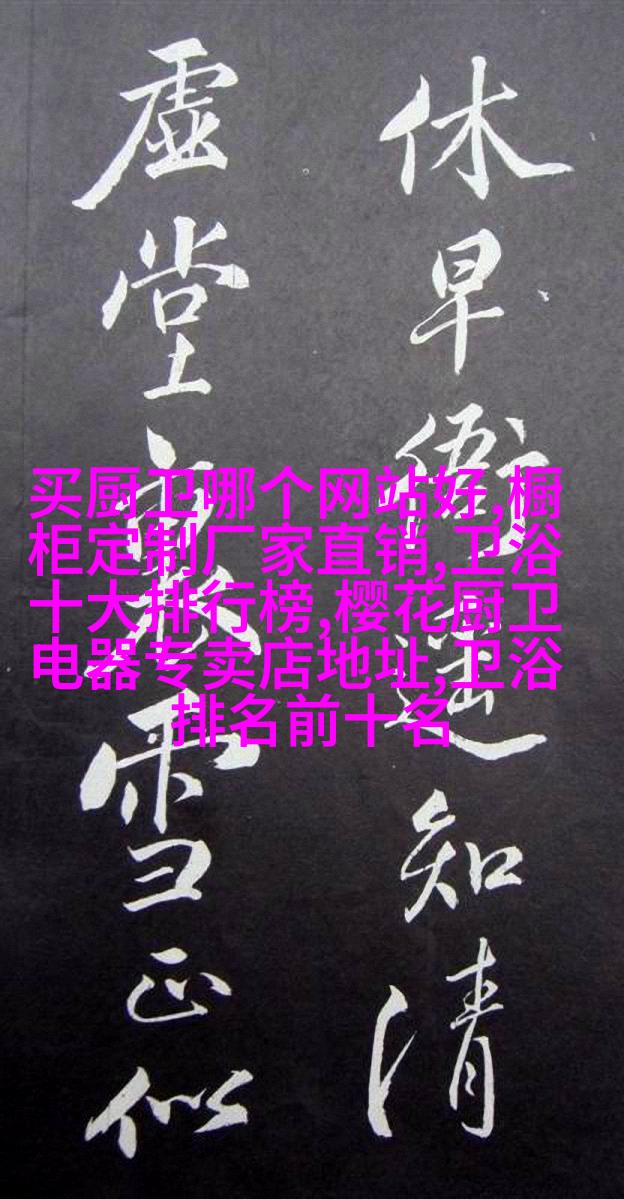 休早衙遙知清
虛堂裏雪正似
买厨卫哪个网站好,橱
柜定制厂家直销,卫浴
十大排行榜,樱花厨卫
电器专卖店地址,卫浴
排名前十名